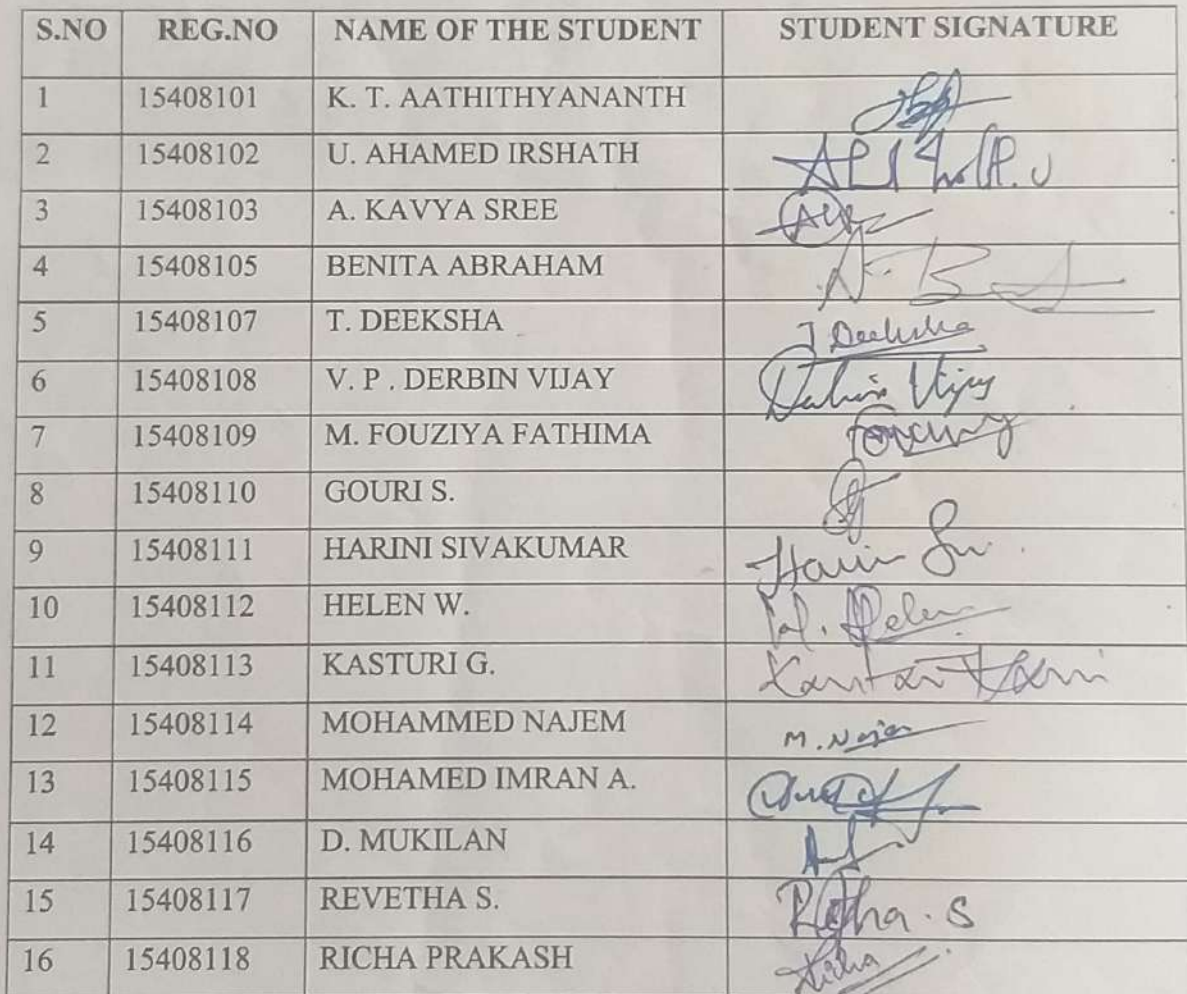 S.NO REG.NO NAME OF THE STUDENT STUDENT SIGNATURE
1 15408101 K. T. AATHITHYANANTH
2 15408102 U. AHAMED IRSHATH
3 15408103 A. KAVYA SREE
4 15408105 BENITA ABRAHAM
5 15408107 T. DEEKSHA T Deeksha
6 15408108 V. P . DERBIN VIJAY Vijay
7 15408109 M. FOUZIYA FATHIMA
8 15408110 GOURI S.
9 15408111 HARINI SIVAKUMAR
10 15408112 HELEN W. W. Helen
11 15408113 KASTURI G.
12 15408114 MOHAMMED NAJEM M. Najem
13 15408115 MOHAMED IMRAN A.
14 15408116 D. MUKILAN
15 15408117 REVETHA S.
16 15408118 RICHA PRAKASH Richa